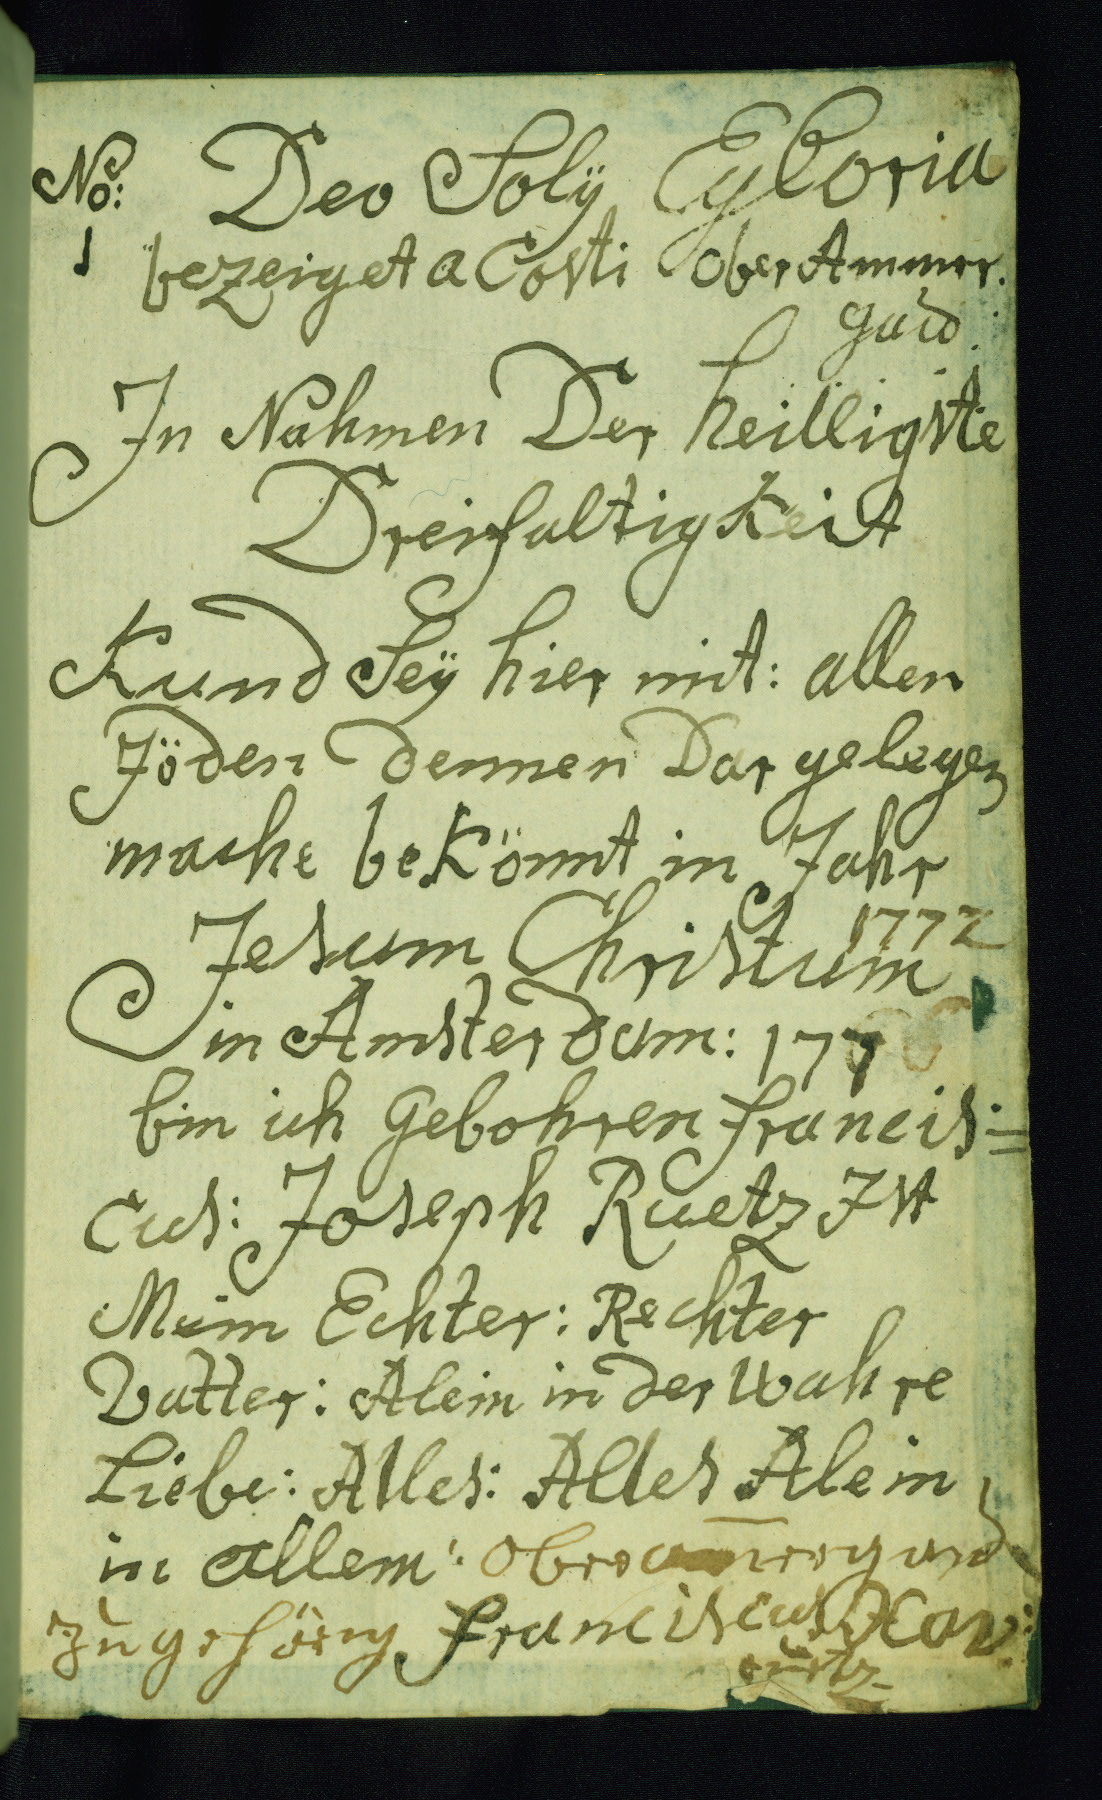 No: Deo Solÿ Gloria
1 bezeiget a Costi Ober Ammer.
gaw:
In Nahmen Der heilligste
Dreifaltigkeit
Kund Seÿ hier mit: allen
Jöden dennen Dar gelegen
mache bekönnt in Jahr
1772
Jesum Christum
in Amsterdam: 177
bin ich Gebohren francis=
cus: Joseph Ruetz Ist
Mein Echter: Rechter
Vatter: Alein in der Wahre
Liebe: Alles: Alles Alein
in allem: Oberamergau
zu gehörig franciscus Xav:
ruetz